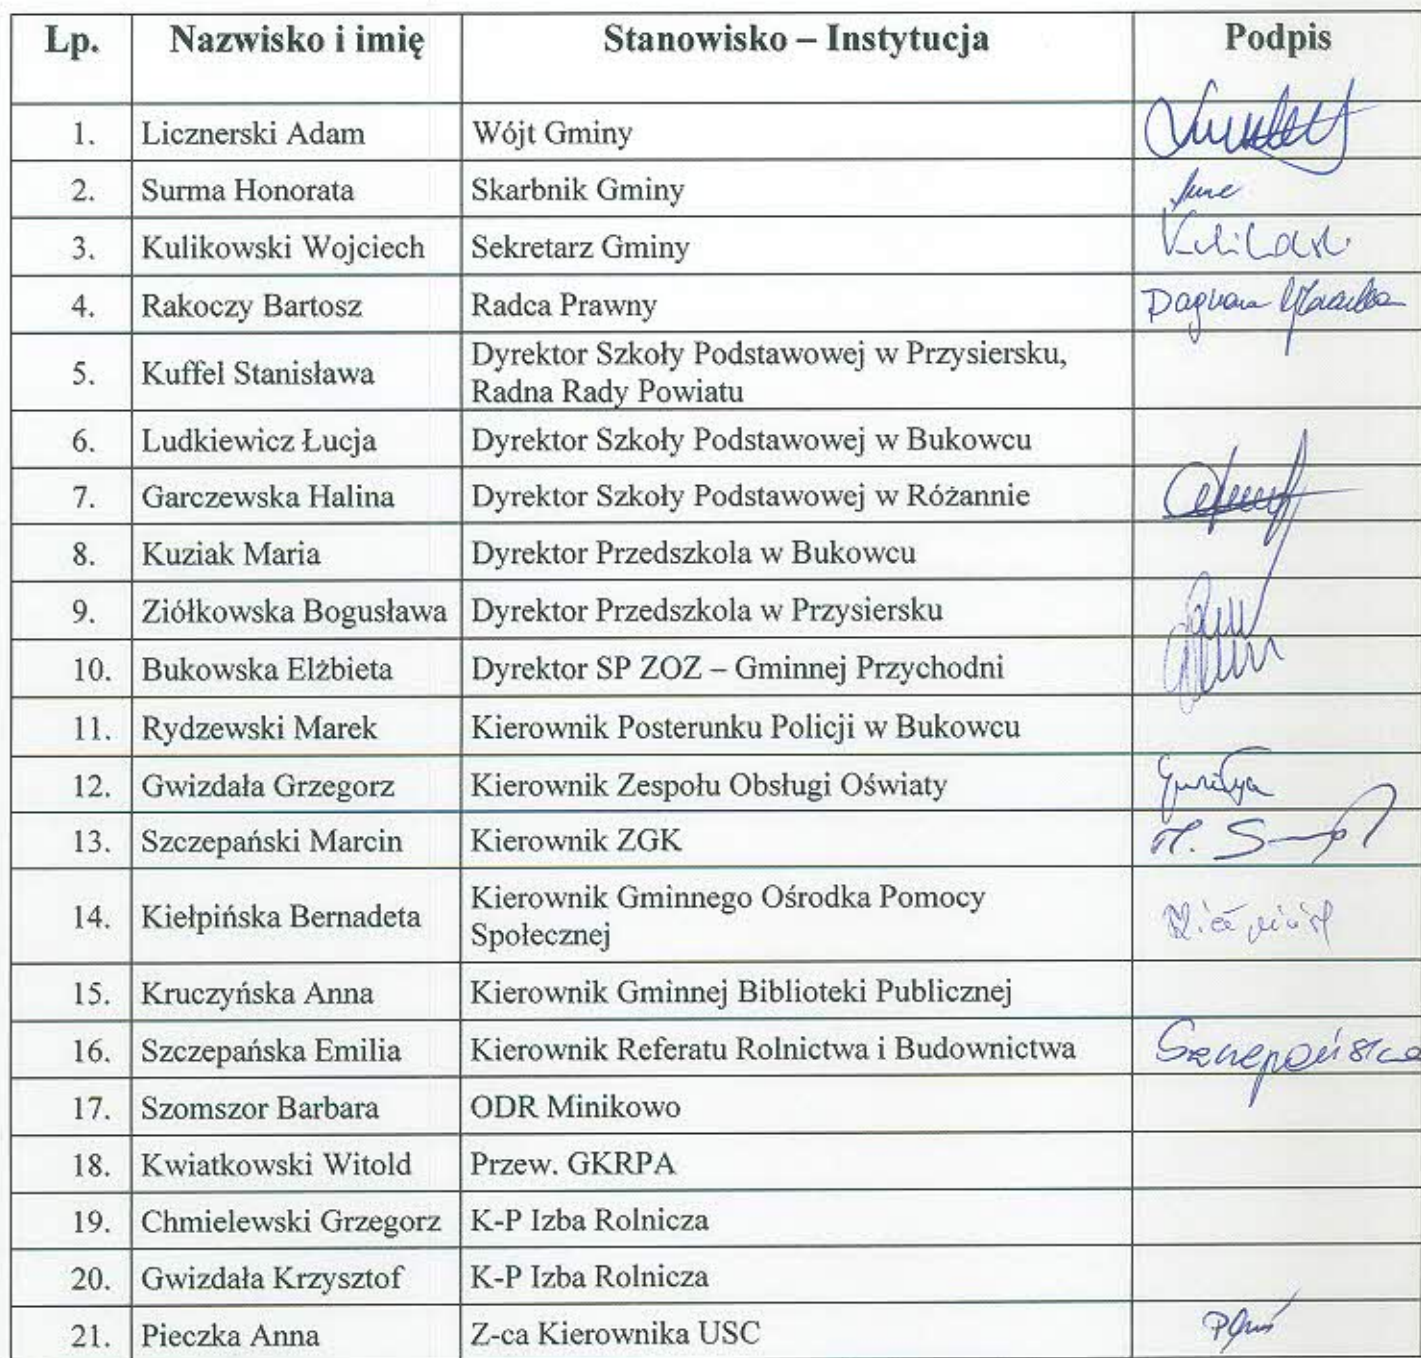 Lp. Nazwisko i imię Stanowisko – Instytucja Podpis
1. Licznerski Adam Wójt Gminy
2. Surma Honorata Skarbnik Gminy
3. Kulikowski Wojciech Sekretarz Gminy
4. Rakoczy Bartosz Radca Prawny
5. Kuffel Stanisława Dyrektor Szkoły Podstawowej w Przysiersku,
Radna Rady Powiatu
6. Ludkiewicz Łucja Dyrektor Szkoły Podstawowej w Bukowcu
7. Garczewska Halina Dyrektor Szkoły Podstawowej w Różannie
8. Kuziak Maria Dyrektor Przedszkola w Bukowcu
9. Ziółkowska Bogusława Dyrektor Przedszkola w Przysiersku
10. Bukowska Elżbieta Dyrektor SP ZOZ – Gminnej Przychodni
11. Rydzewski Marek Kierownik Posterunku Policji w Bukowcu
12. Gwizdała Grzegorz Kierownik Zespołu Obsługi Oświaty
13. Szczepański Marcin Kierownik ZGK
14. Kiełpińska Bernadeta Kierownik Gminnego Ośrodka Pomocy
Społecznej
15. Kruczyńska Anna Kierownik Gminnej Biblioteki Publicznej
16. Szczepańska Emilia Kierownik Referatu Rolnictwa i Budownictwa Szczepańska
17. Szomszor Barbara ODR Minikowo
18. Kwiatkowski Witold Przew. GKRPA
19. Chmielewski Grzegorz K-P Izba Rolnicza
20. Gwizdała Krzysztof K-P Izba Rolnicza
21. Pieczka Anna Z-ca Kierownika USC